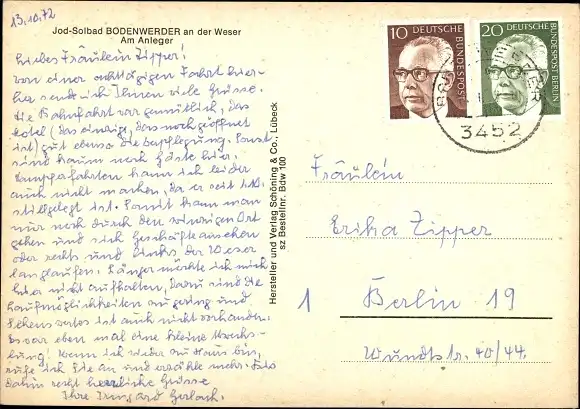 13.10.72
Jod-Solbad BODENWERDER an der Weser
Am Anleger
Liebes Fräulein Zipper!
Von einer achttägigen Fahrt hier-
her sende ich Ihnen viele Grüsse.
Die Bahnfahrt war gemütlich, das
Hotel (das einzig, das noch geöffnet
ist) gut ebenso die Verpflegung. Sonst
sind kaum noch Gäste hier.
Dampfahrten kann ich leider
auch nicht machen, da er seit 1.10.
stillgelegt ist. Somit kann man
nur noch durch den winzigen Ort
gehen und sich Geschäfte ansehen
oder rechts und links der Weser
langlaufen. Länger möchte ich mich
hier nicht aufhalten, dazu sind die
Kaufmöglichkeiten zu gering und
Sehenswertes ist auch nicht vorhanden.
Es war eben mal eine kleine Abwechs-
lung! Wenn ich wieder zu Haus bin,
rufe ich Sie an und erzähle mehr. Bis
dahin recht herzliche Grüsse
Ihre Irmgard Gerlach.
Hersteller und Verlag Schöning & Co., Lübeck
sz Bestellnr. Bdw 100
10 DEUTSCHE BUNDESPOST
20 DEUTSCHE BUNDESPOST BERLIN
3452
Fräulein
Erika Zipper
1 Berlin 19
Wundtstr. 40/44.